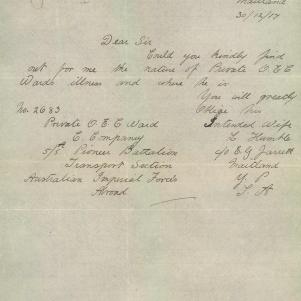 Maitland
30/12/17
Dear Sir
Could you kindly find
out for me the nature of Private O. E. C
Wards illness and where he is
You will greatly
Oblige his
No. 2683
Intended Wife
Private O. E. C Ward
L Humble
C Company
c/o E. G. Jarrett
5/th Pioneer Battalion
Maitland
Transport Section
Y. P
Australian Imperial Forces
S. A
Abroad